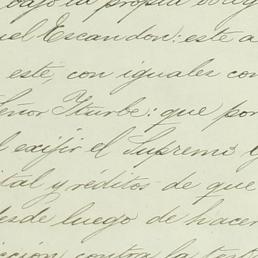 bajo la propia
uel Escandon: este a
este, con iguales con
Señor Yturbe: que por
l exijir el Supremo G
ital y réditos de que
desde luego de hacer
cción contra la